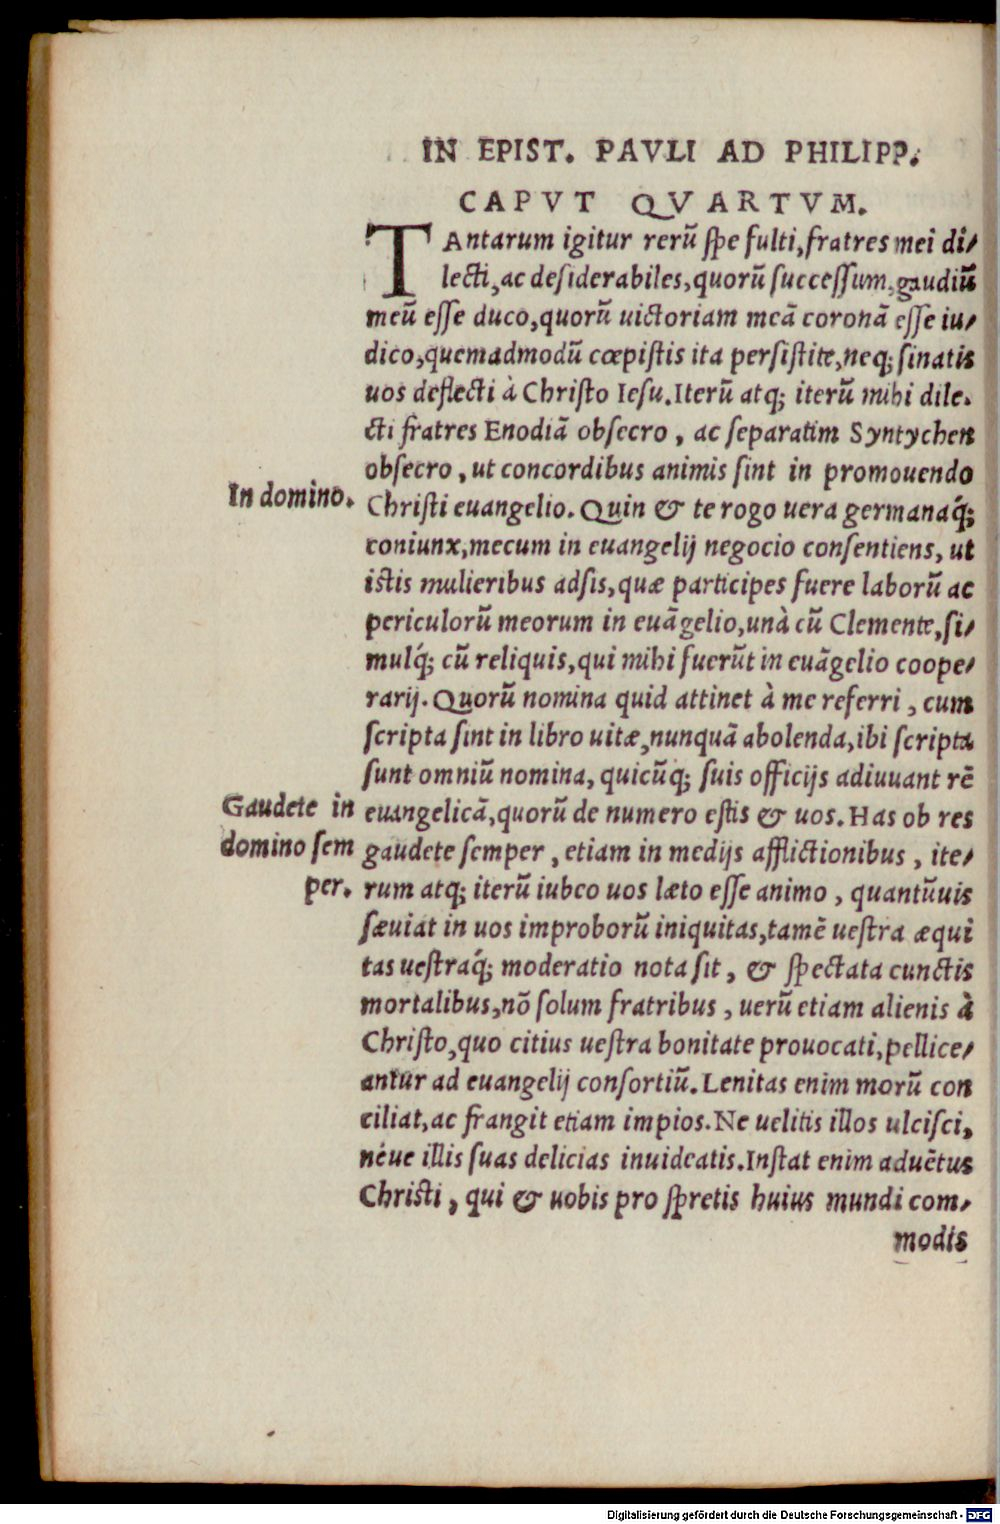 IN EPIST. PAVLI AD PHILIPP.
CAPVT QVARTVM.
TAntarum igitur rerū spe fulti, fratres mei di⸗
lecti, ac desiderabiles, quorū successum, gaudiū
meū esse duco, quorū uictoriam meā coronā esse iu⸗
dico, quemadmodū cœpistis ita persistite, neq; sinatis
uos deflecti à Christo Iesu. Iterū atq; iterū mihi dile.
cti fratres Enodiā obsecro, ac separatim Syntychen
obsecro, ut concordibus animis sint in promouendo
In domino.
Christi euangelio. Quin & te rogo uera germanaq́;
coniunx, mecum in euangelij negocio consentiens, ut
istis mulieribus adsis, quæ participes fuere laborū ac
periculorū meorum in euāgelio, unà cū Clemente, si⸗
mulq́; cū reliquis, qui mihi fuerūt in euāgelio coope⸗
rarij. Quorū nomina quid attinet à me referri, cum
scripta sint in libro uitæ, nunquā abolenda, ibi scripta
sunt omniū nomina, quicūq; suis officijs adiuuant rē
Gaudete in
euangelicā, quorū de numero estis & uos. Has ob res
domino sem
gaudete semper, etiam in medijs afflictionibus, ite⸗
per.
rum atq; iterū iubeo uos læto esse animo, quantūuis
sæuiat in uos improborū iniquitas, tamē uestra æqui
tas uestraq́; moderatio nota sit, & spectata cunctis
mortalibus, nō solum fratribus, uerū etiam alienis à
Christo, quo citius uestra bonitate prouocati, pellice⸗
antur ad euangelij consortiū. Lenitas enim morū con
ciliat, ac frangit etiam impios. Ne uelitis illos ulcisci,
néue illis suas delicias inuideatis. Instat enim aduētus
Christi, qui & uobis pro spretis huius mundi com⸗
modis
Digitalisierung gefördert durch die Deutsche Forschungsgemeinschaft - DFG